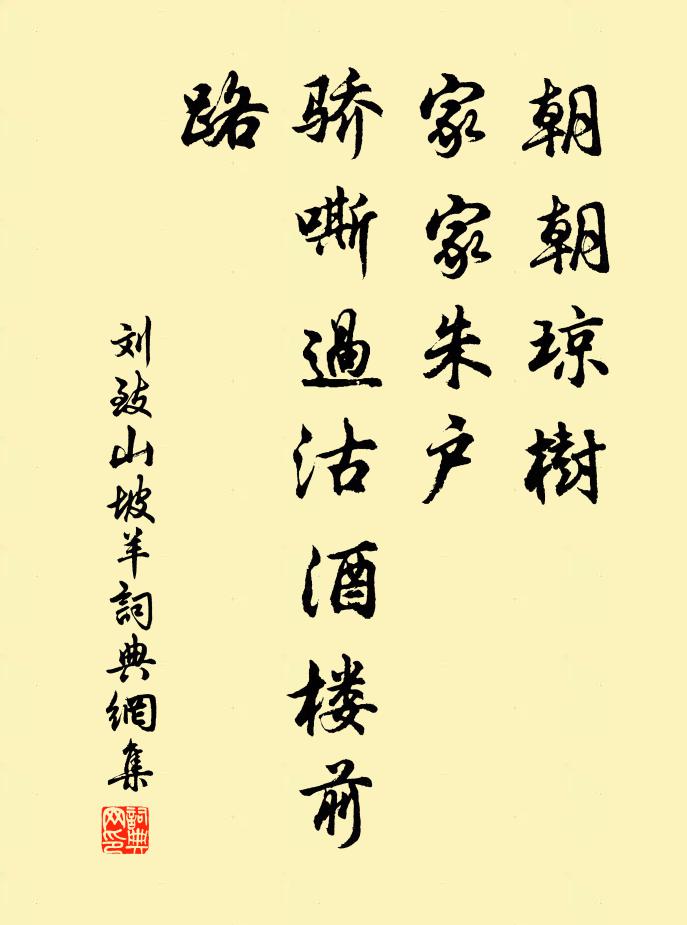 朝朝琼樹
家家朱户
骄嘶過沽酒楼前
路
刘致山坡羊詞典網集
詞典网印